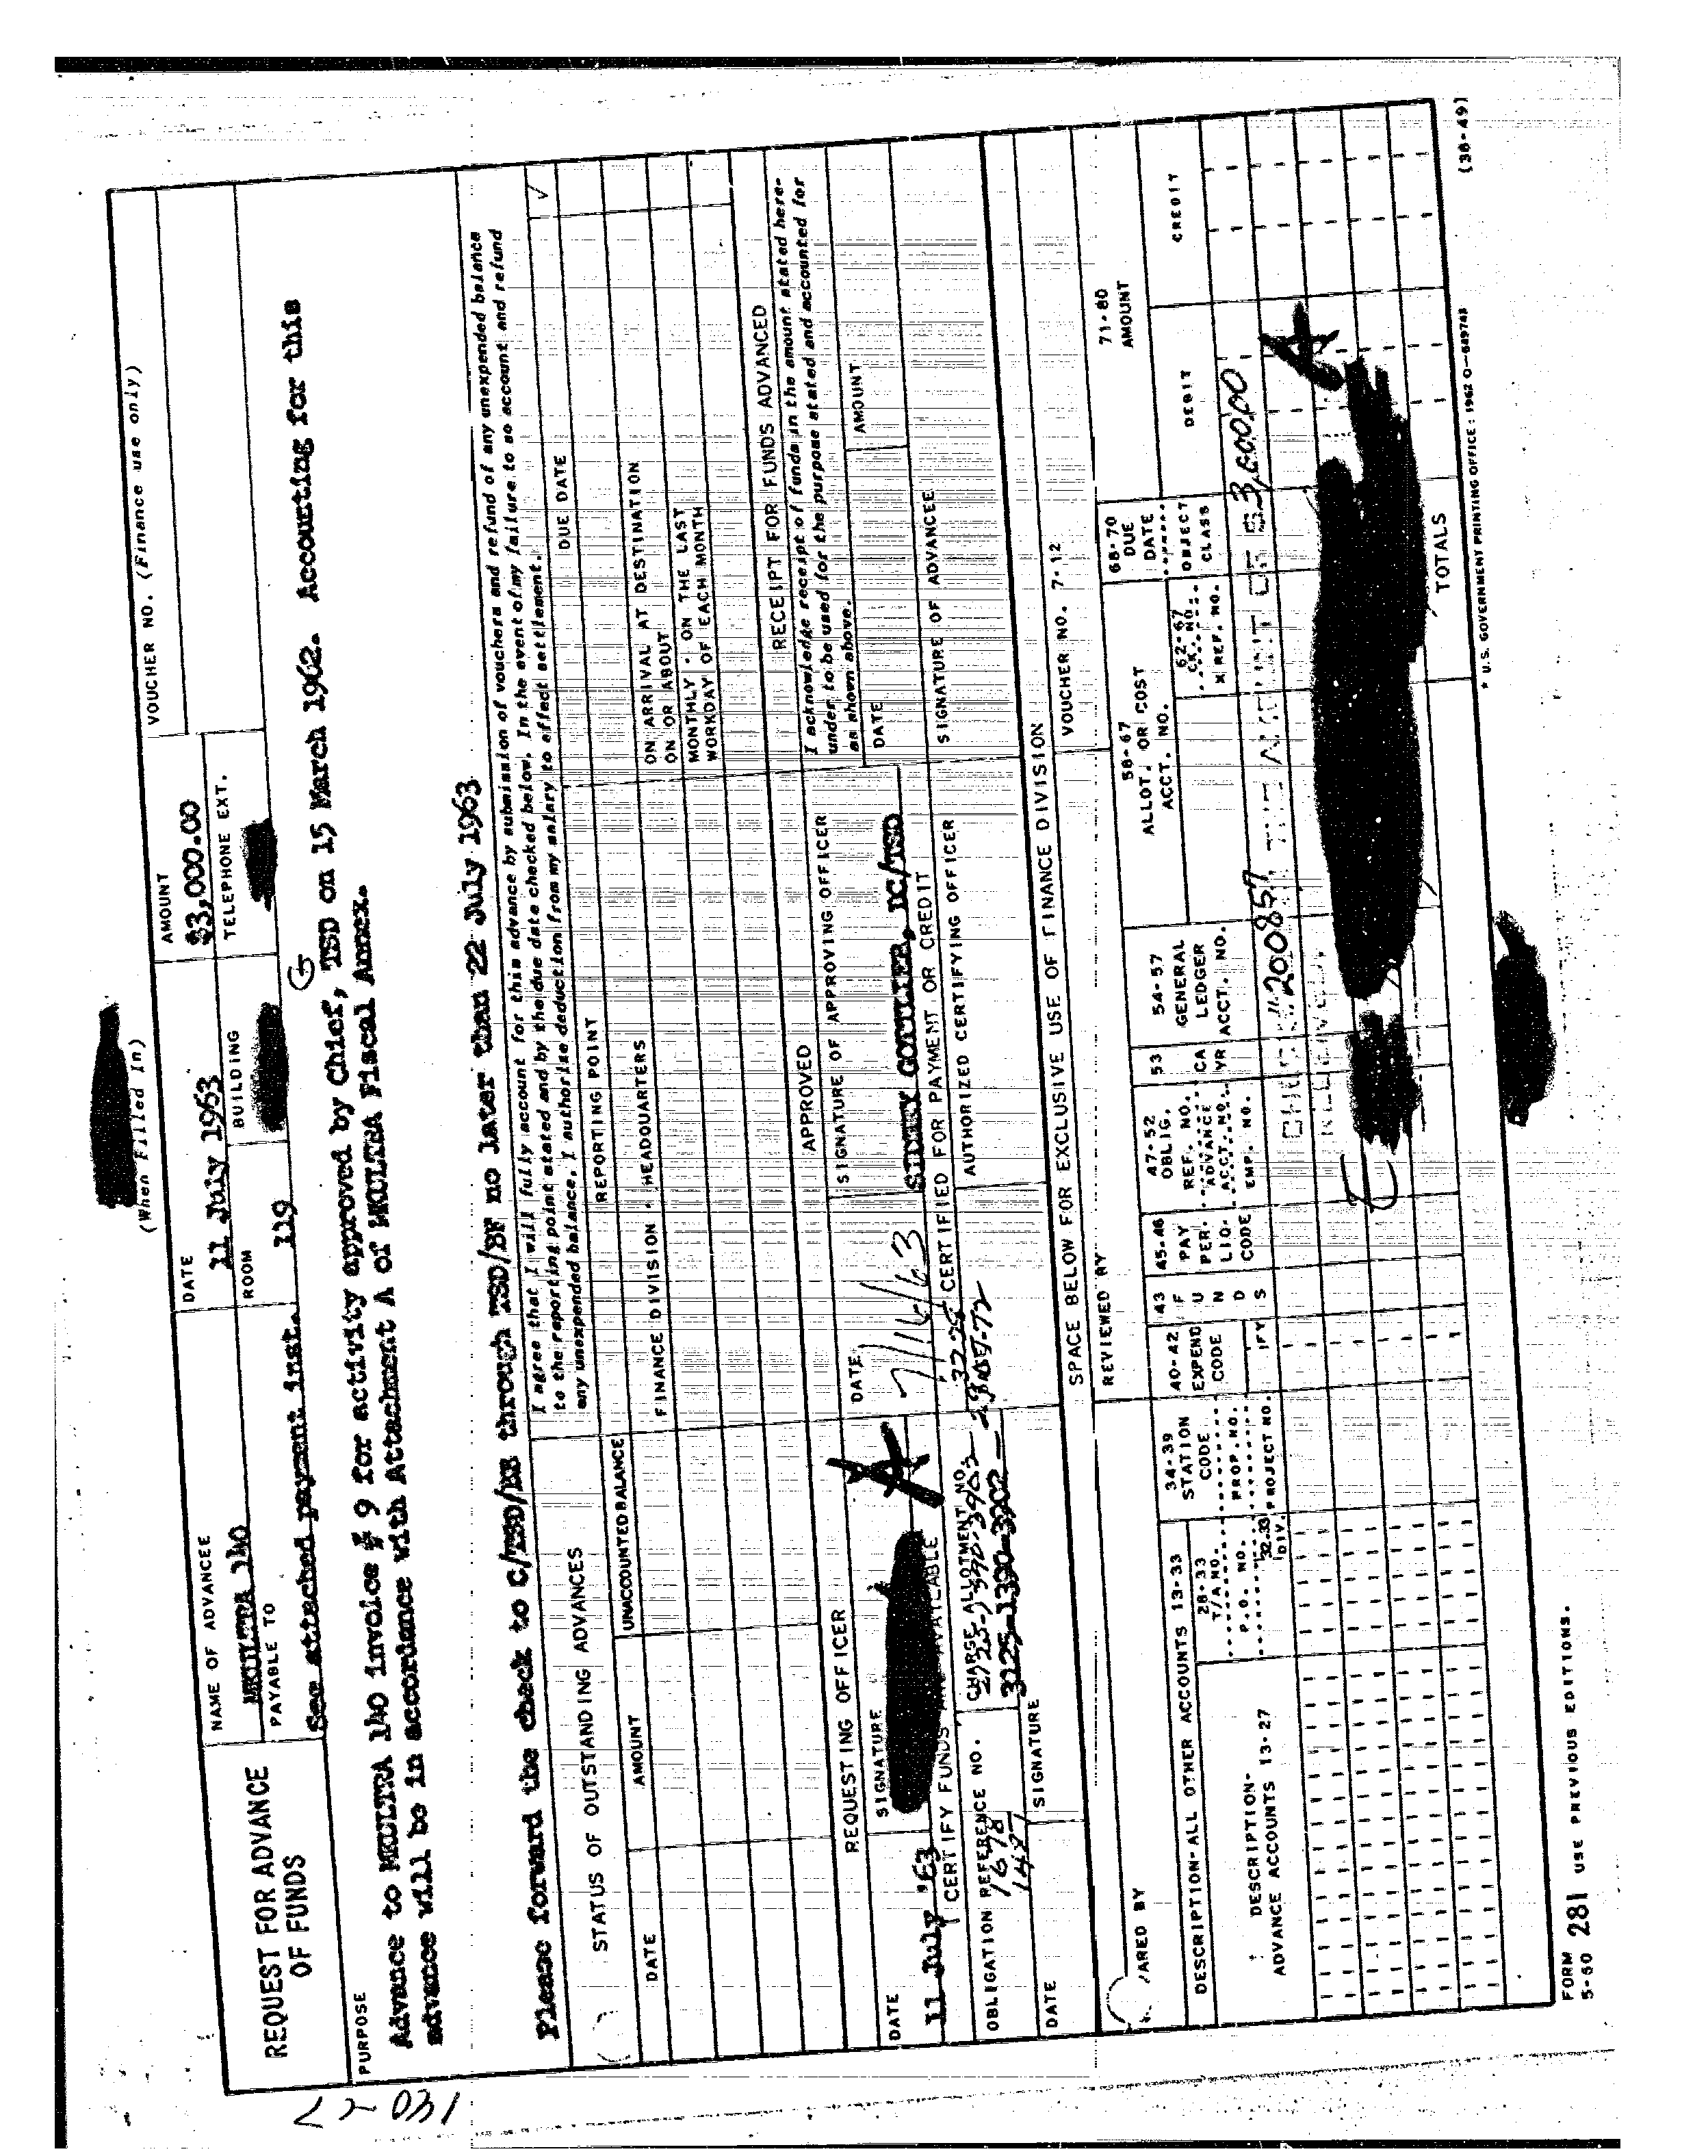 (When Filled In)
REQUEST FOR ADVANCE
OF FUNDS
NAME OF ADVANCEE
MKULTRA 140
DATE
11 July 1963
AMOUNT
$3,000.00
VOUCHER NO. (Finance use only)
PAYABLE TO
See attached payment inst.
ROOM
119
BUILDING
TELEPHONE EXT.
PURPOSE
G
Advance to MKULTRA 140 invoice # 9 for activity approved by Chief, TSD on 15 March 1962. Accounting for this
advance will be in accordance with Attachment A of MKULTRA Fiscal Annex.
Please forward the check to C/TSD/BR through TSD/BF no later than 22 July 1963
STATUS OF OUTSTANDING ADVANCES
DATE
AMOUNT
UNACCOUNTED BALANCE
I agree that I will fully account for this advance by submission of vouchers and refund of any unexpended balance
to the reporting point stated and by the due date checked below. In the event of my failure to so account and refund
any unexpended balance, I authorize deduction from my salary to effect settlement.
REPORTING POINT
DUE DATE
√
FINANCE DIVISION - HEADQUARTERS
ON ARRIVAL AT DESTINATION
ON OR ABOUT
MONTHLY - ON THE LAST
WORKDAY OF EACH MONTH
REQUESTING OFFICER
APPROVED
RECEIPT FOR FUNDS ADVANCED
I acknowledge receipt of funds in the amount stated here-
under to be used for the purpose stated and accounted for
as shown above.
DATE
11 July '63
SIGNATURE
A
DATE
7/11/63
SIGNATURE OF APPROVING OFFICER
SIDNEY GOTTLIEB, DC/TSD
DATE
AMOUNT
I CERTIFY FUNDS ARE AVAILABLE
CERTIFIED FOR PAYMENT OR CREDIT
SIGNATURE OF ADVANCEE
OBLIGATION REFERENCE NO.
1678
1487
CHARGE ALLOTMENT NO.
3125-1390-3902
AUTHORIZED CERTIFYING OFFICER
DATE
SIGNATURE
SPACE BELOW FOR EXCLUSIVE USE OF FINANCE DIVISION
ARED BY
REVIEWED BY
VOUCHER NO. 7-12
DESCRIPTION-ALL OTHER ACCOUNTS 13-33
DESCRIPTION-
ADVANCE ACCOUNTS 13-27
28-33
T/A NO.
P.O. NO.
32-33
DIV.
34-39
STATION
CODE
PROP. NO.
PROJECT NO.
40-42
EXPEND
CODE
FY
43
F
U
N
D
S
45-46
PAY
PER.
LIQ.
CODE
47-52
OBLIG.
REF. NO.
ADVANCE
ACCT. NO.
EMP. NO.
53
CA
YR
54-57
GENERAL
LEDGER
ACCT. NO.
58-67
ALLOT. OR COST
ACCT. NO.
62-67
CK. NO.
X REF. NO.
68-70
DUE
DATE
OBJECT
CLASS
71-80
AMOUNT
DEBIT
CREDIT
200857
3,000.00
A
TOTALS
FORM
5-60 281 USE PREVIOUS EDITIONS.
* U.S. GOVERNMENT PRINTING OFFICE: 1962 O-649743
(38-49)